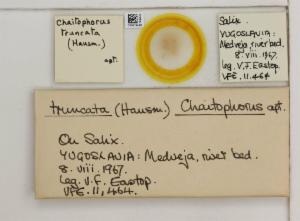 Chaitophorus
truncata
(Hausm.)
apt.
Salix.
YUGOSLAVIA:
Medveja, river bed.
8. viii. 1967.
leg. V.F. Eastop.
VFE. 11,464
truncata (Hausm.) Chaitophorus apt.
On Salix.
YUGOSLAVIA: Medveja, river bed.
8. viii. 1967.
Leg. V.F. Eastop.
VFE. 11,464.